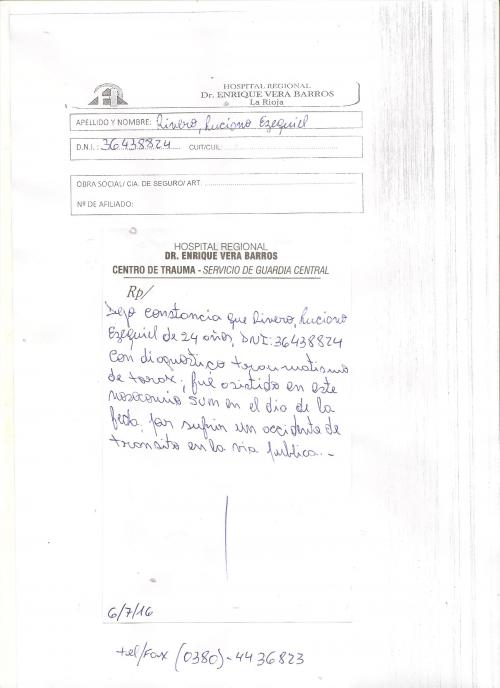 HOSPITAL REGIONAL
Dr. ENRIQUE VERA BARROS
La Rioja
APELLIDO Y NOMBRE: Rivero, Luciano Ezequiel
D.N.I.: 36438824 CUIT/CUIL:
OBRA SOCIAL/ CIA. DE SEGURO/ ART.
Nº DE AFILIADO:
HOSPITAL REGIONAL
DR. ENRIQUE VERA BARROS
CENTRO DE TRAUMA - SERVICIO DE GUARDIA CENTRAL
Rp/
Dejo constancia que Rivero, Luciano
Ezequiel de 24 años, DNI: 36438824
con diagnóstico traumatismo
de torax, fué asistido en este
nosocomio en el dia de la
fecha, por sufrir un accidente de
transito en la via publica.-
6/7/16
tel/fax (0380)-4436823